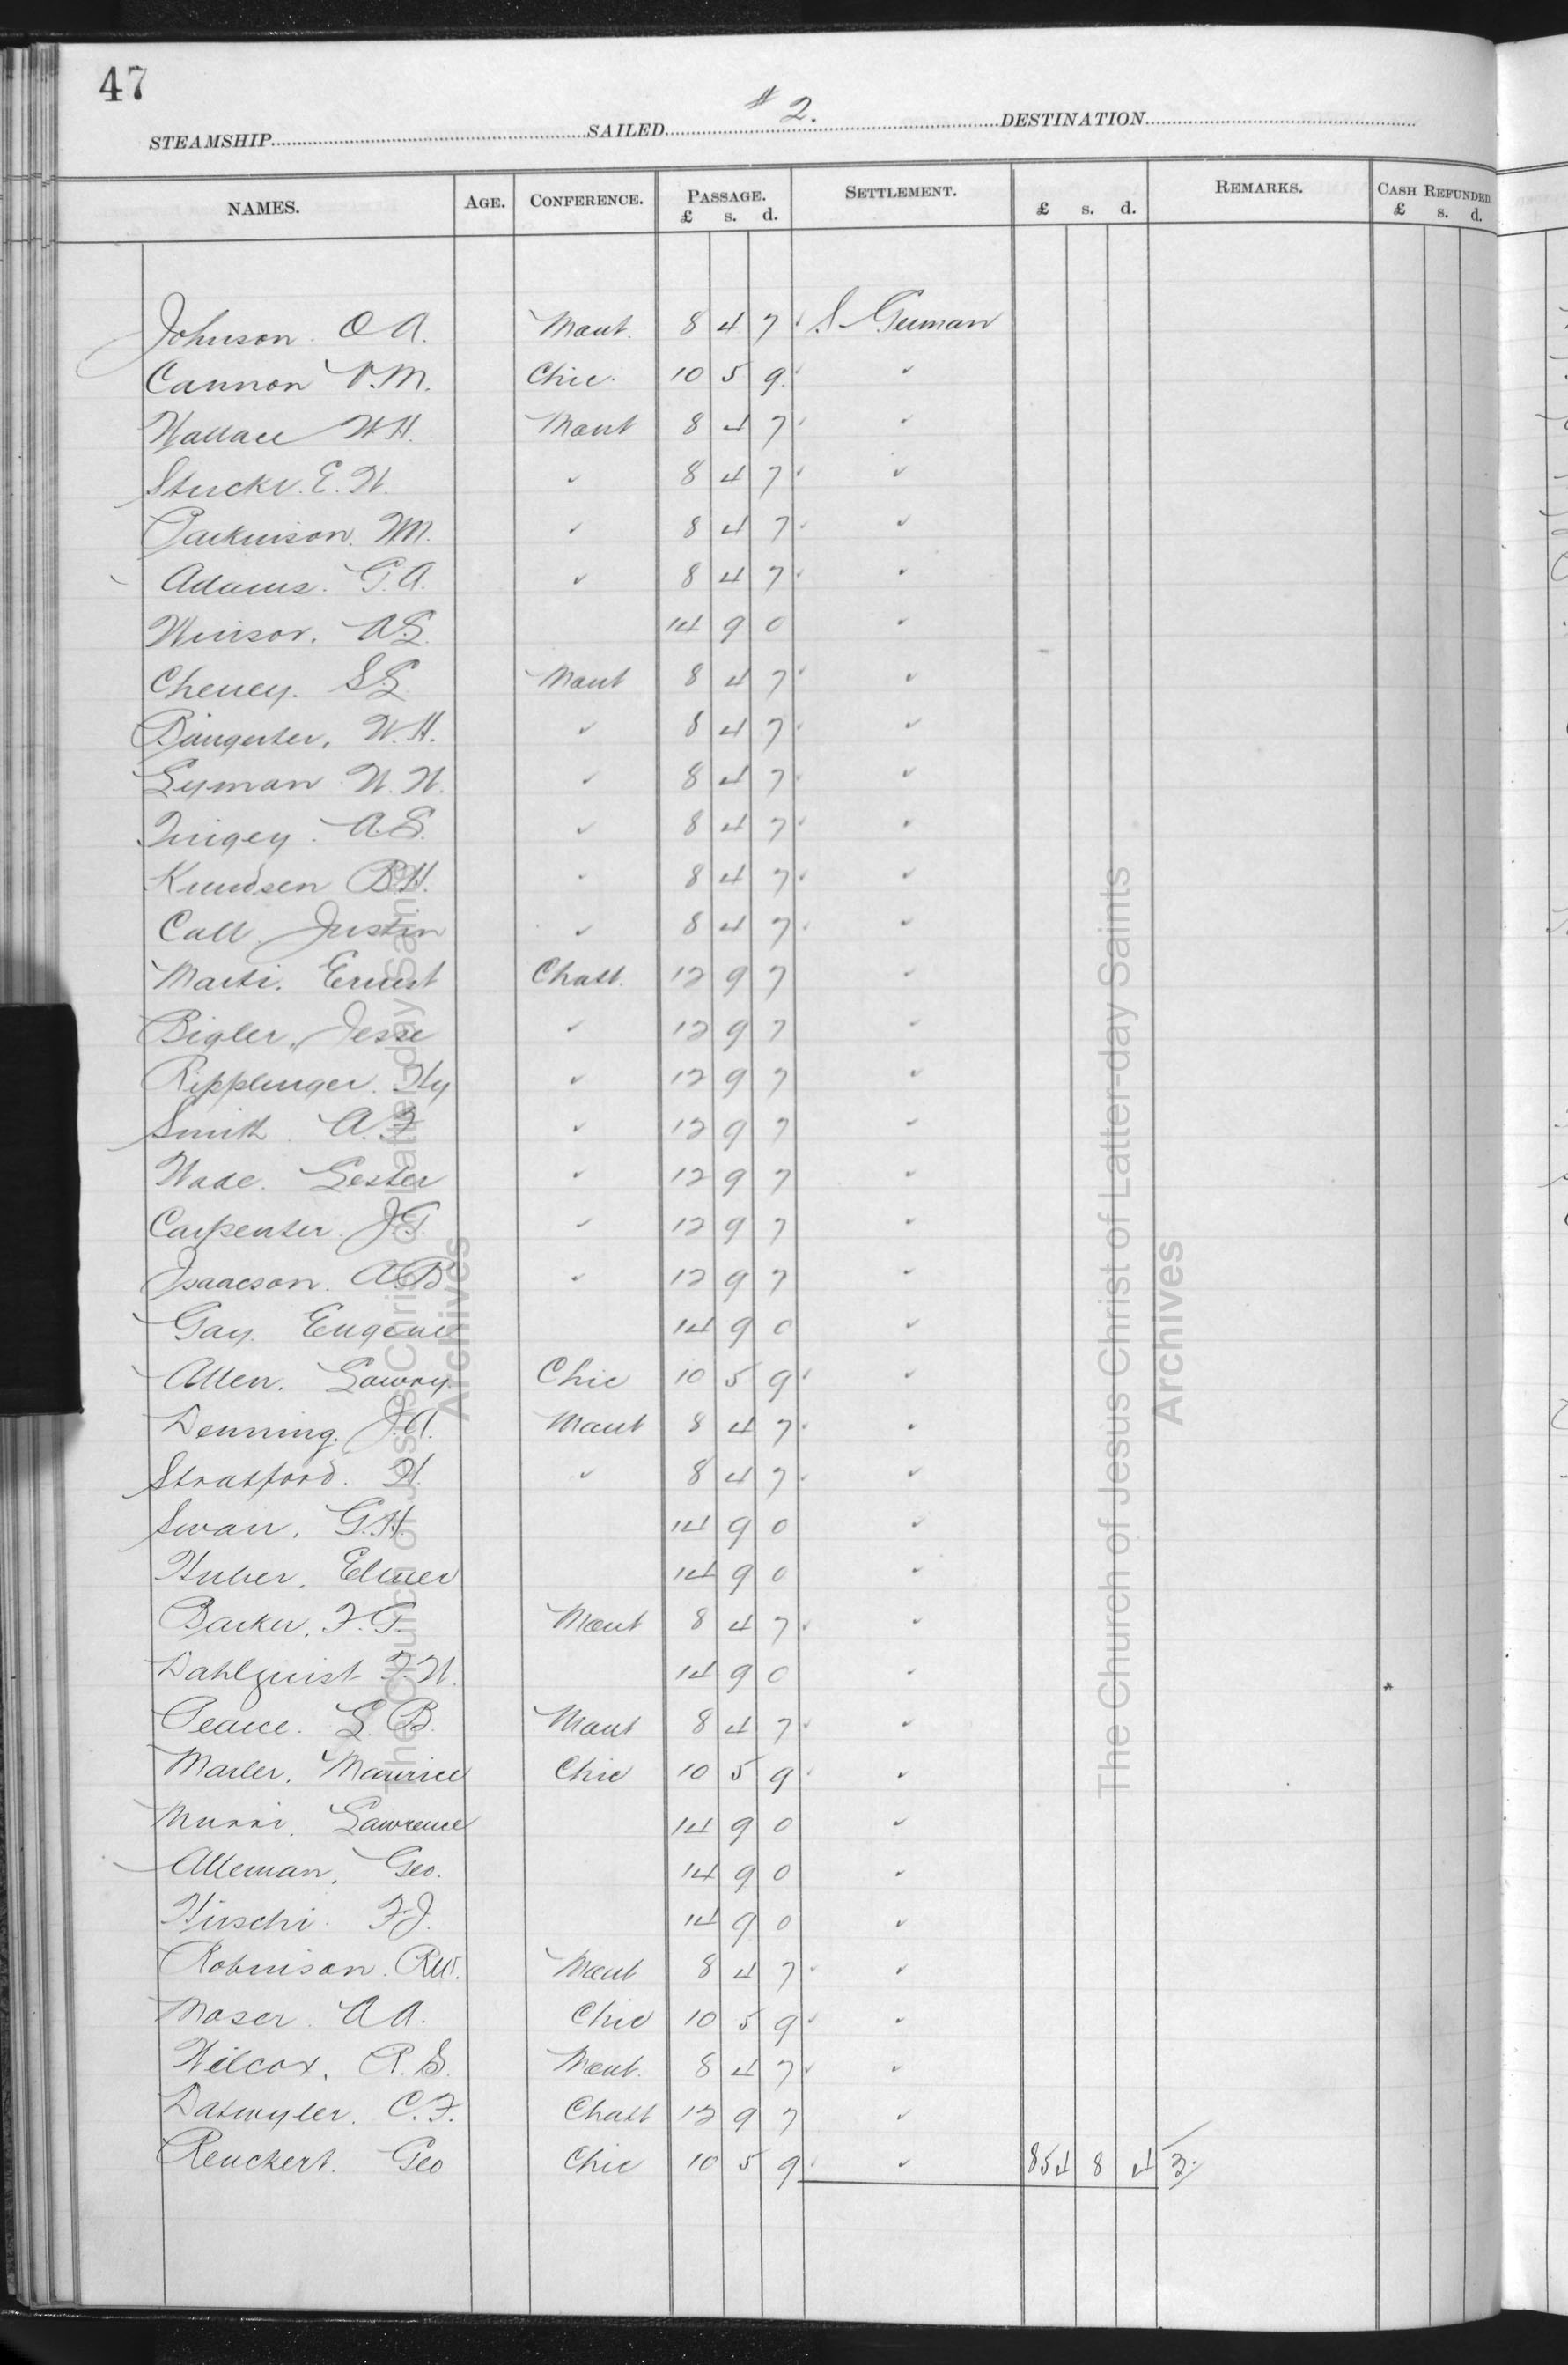 47
# 2.
STEAMSHIP SAILED DESTINATION
NAMES. AGE. CONFERENCE. PASSAGE. £ s. d. SETTLEMENT. £ s. d. REMARKS. CASH REFUNDED. £ s. d.
Johnson. O A. Mont. 8 4 7 ✓ S German
Cannon V. M. Chic. 10 5 9 ✓ ✓
Wallace W H. Mont 8 4 7 ✓ ✓
E. W. ✓ 8 4 7 ✓ ✓
Parkinson. Wm. ✓ 8 4 7 ✓ ✓
Adams. G. A. ✓ 8 4 7 ✓ ✓
Winsor. A L. 14 9 0 ✓
Cheney. S L Mont 8 4 7 ✓ ✓
Bangerter, W. H. ✓ 8 4 7 ✓ ✓
Lyman W. W. ✓ 8 4 7 ✓ ✓
Tingey. A. S. ✓ 8 4 7 ✓ ✓
Knudsen B H. ✓ 8 4 7 ✓ ✓
Call. Justin ✓ 8 4 7 ✓ ✓
Marti. Ernest Chatt. 12 9 7 ✓
Bigler, Jesse ✓ 12 9 7 ✓
Ripplinger. Hy ✓ 12 9 7 ✓
Smith. A. F. ✓ 12 9 7 ✓
Wade. Lester ✓ 12 9 7 ✓
Carpenter. J. G. ✓ 12 9 7 ✓
Isaacson. A. B ✓ 12 9 7 ✓
Gay. Eugene 14 9 0 ✓
Allen. Chic 10 5 9 ✓ ✓
Denning. J. A. Mont 8 4 7 ✓ ✓
Stratford. W. ✓ 8 4 7 ✓ ✓
Swan, G. H. 14 9 0 ✓
Huber, Elmer 14 9 0 ✓
Barker, F. G. Mont 8 4 7 ✓ ✓
Dahlquist F. W. 14 9 0 ✓
Pearce. L. B. Mont 8 4 7 ✓ ✓
Marler, Maurice Chic 10 5 9 ✓ ✓
Munni, Lawrence 14 9 0 ✓
Alleman, Geo. 14 9 0 ✓
Hirschi. F J. 14 9 0 ✓
Robinson. R W. Mont 8 4 7 ✓ ✓
Moser. A A. Chic 10 5 9 ✓ ✓
Wilcox, R. S. Mont. 8 4 7 ✓ ✓
Datwyler. C. F. Chatt 12 9 7 ✓
Reuckert. Geo Chic 10 5 9 ✓ ✓ 854 8 4
The Church of Jesus Christ of Latter-day Saints
Archives
The Church of Jesus Christ of Latter-day Saints
Archives